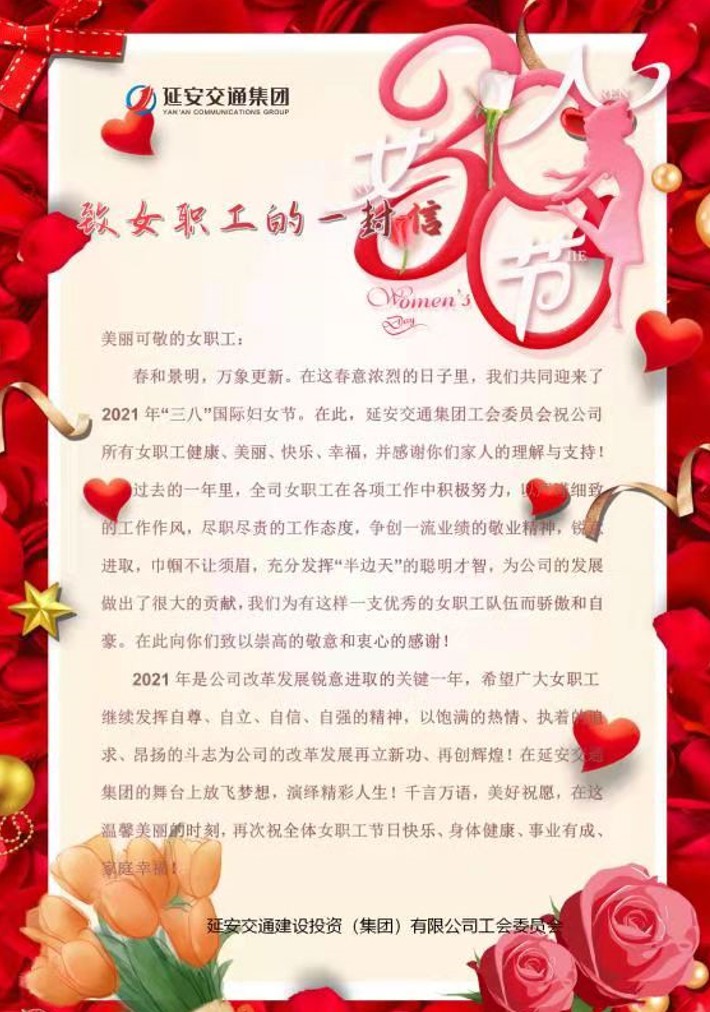 延安交通集团
YAN'AN COMMUNICATIONS GROUP
女人节
38
致女职工的一封信
Women's
Day
美丽可敬的女职工：
春和景明，万象更新。在这春意浓烈的日子里，我们共同迎来了
2021年“三八”国际妇女节。在此，延安交通集团工会委员会祝公司
所有女职工健康、美丽、快乐、幸福，并感谢你们家人的理解与支持！
过去的一年里，全司女职工在各项工作中积极努力，以细致
的工作作风，尽职尽责的工作态度，争创一流业绩的敬业精神，锐意
进取，巾帼不让须眉，充分发挥“半边天”的聪明才智，为公司的发展
做出了很大的贡献，我们为有这样一支优秀的女职工队伍而骄傲和自
豪。在此向你们致以崇高的敬意和衷心的感谢！
2021年是公司改革发展锐意进取的关键一年，希望广大女职工
继续发挥自尊、自立、自信、自强的精神，以饱满的热情、执着的追
求、昂扬的斗志为公司的改革发展再立新功、再创辉煌！在延安交通
集团的舞台上放飞梦想，演绎精彩人生！千言万语，美好祝愿，在这
温馨美丽的时刻，再次祝全体女职工节日快乐、身体健康、事业有成、
家庭幸福！
延安交通建设投资（集团）有限公司工会委员会